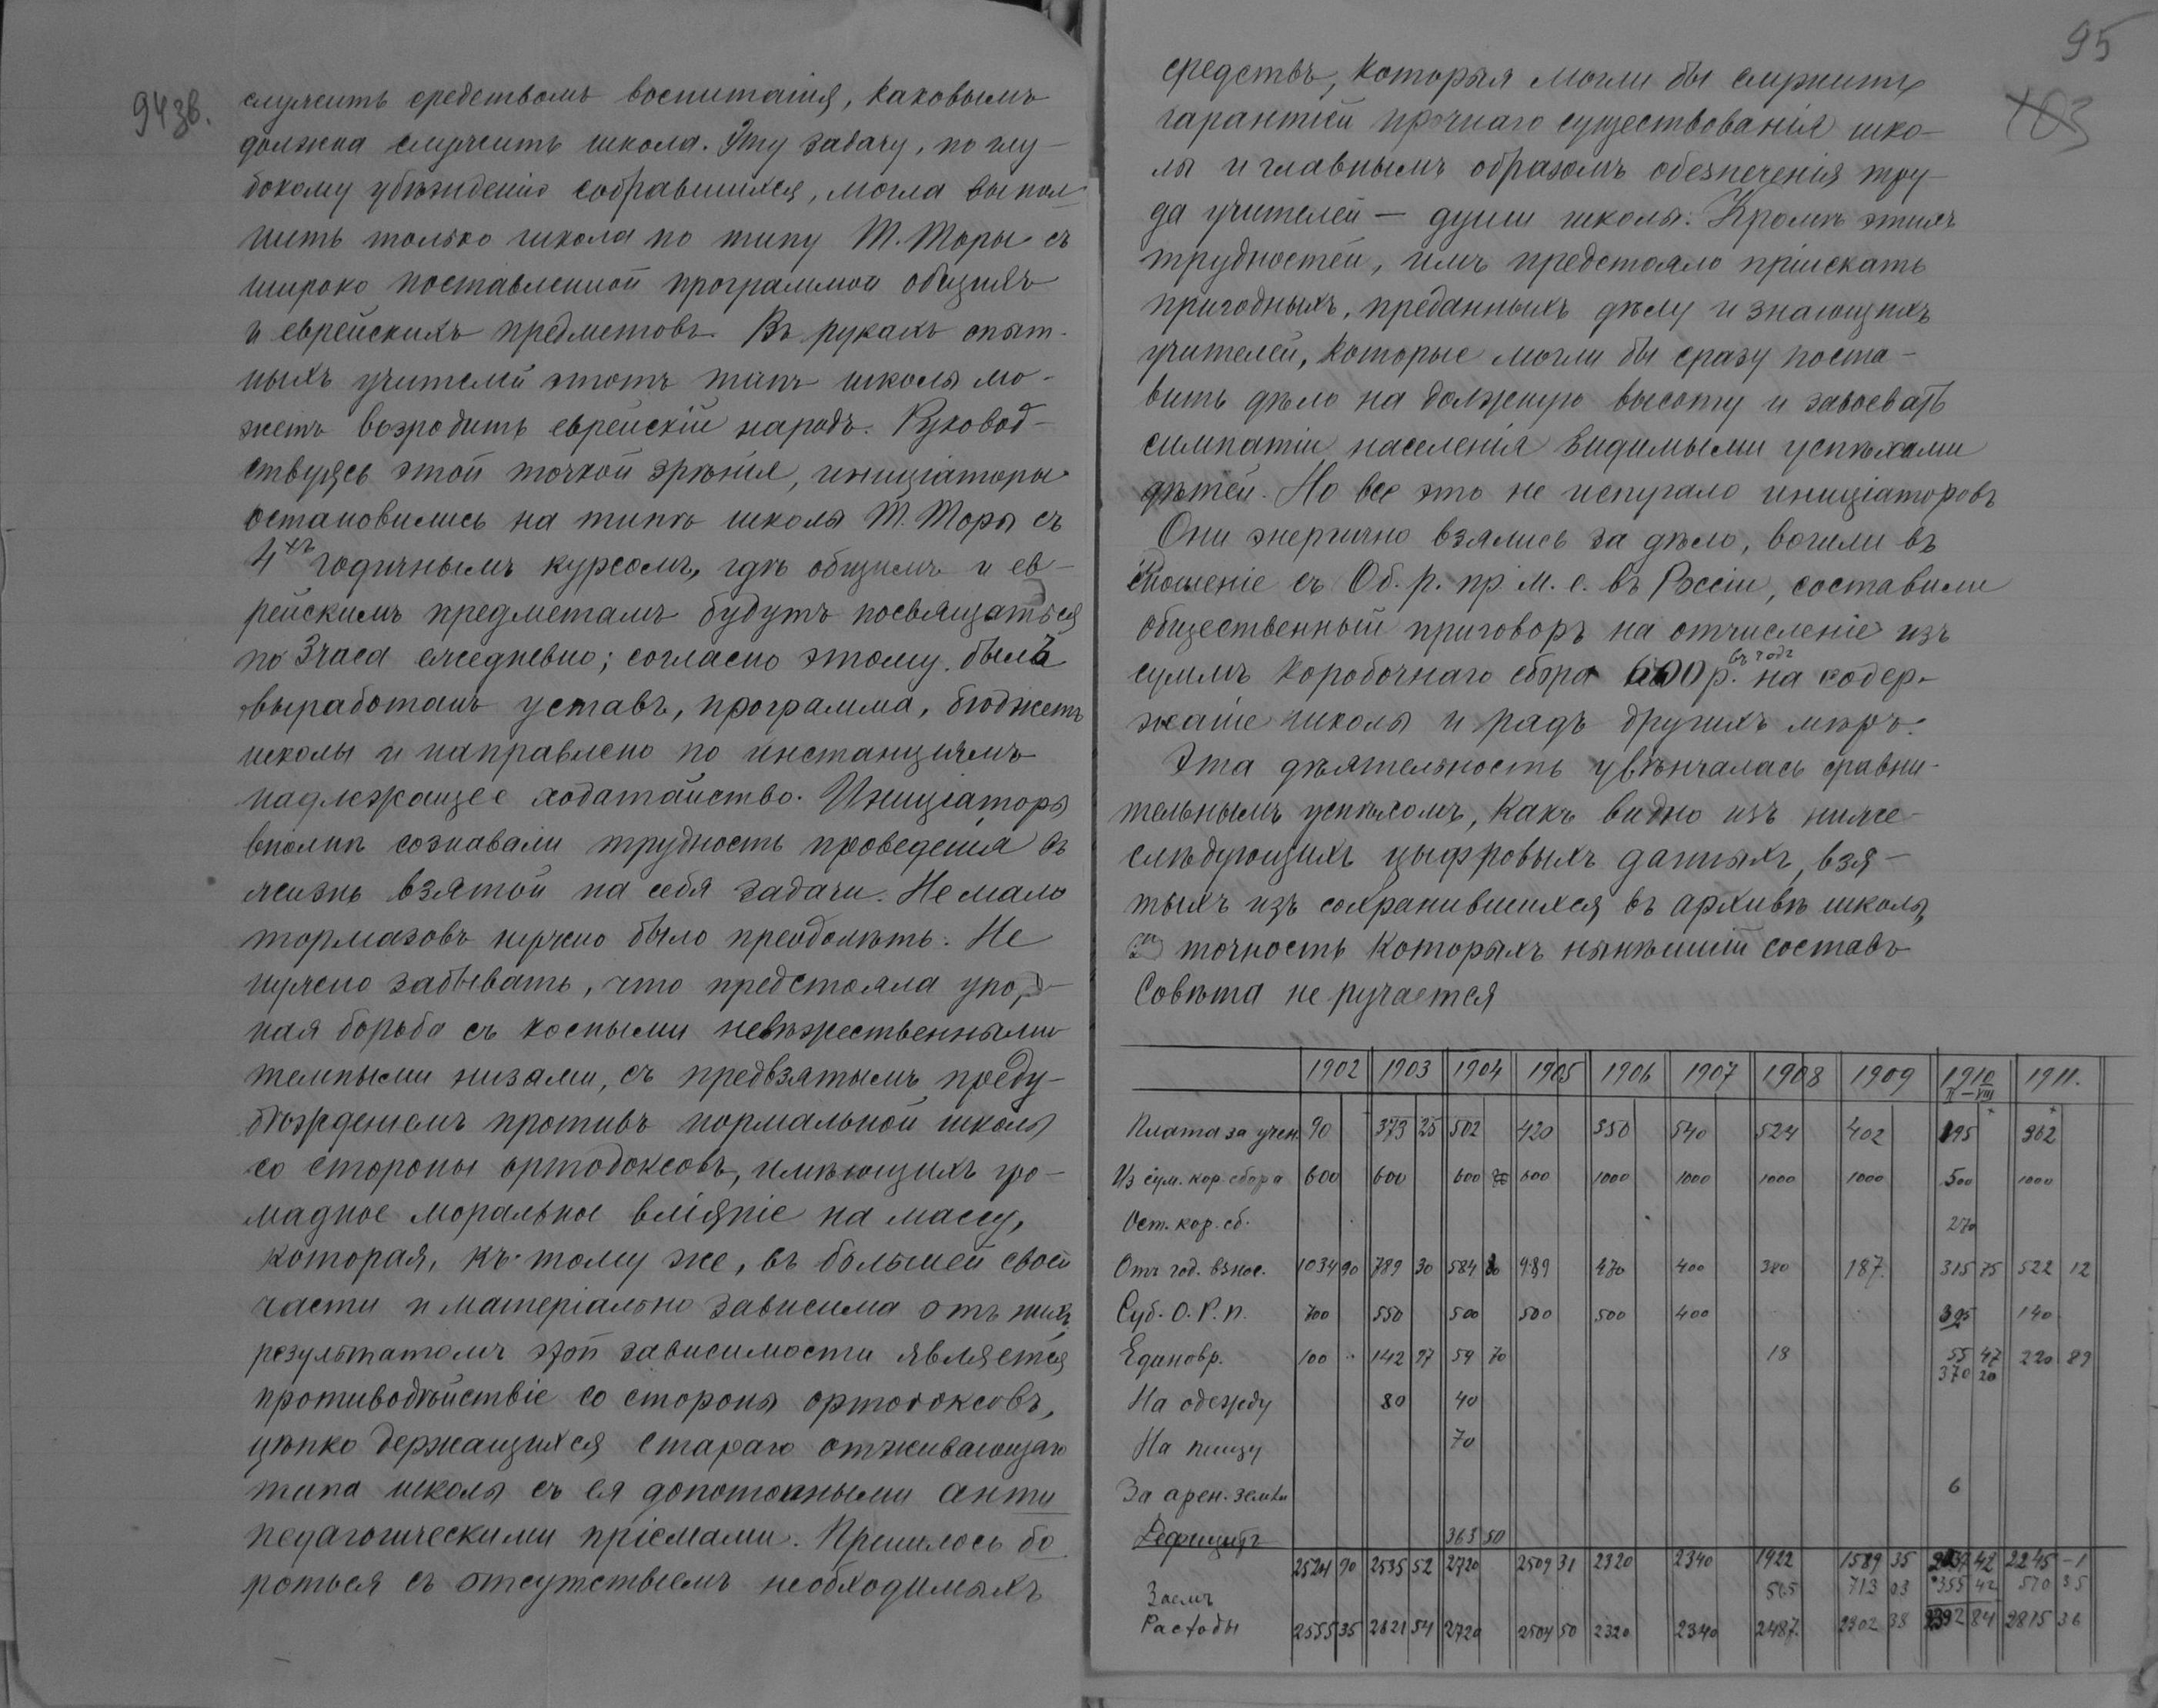 94зв.
служить средствомъ воспитанія, каковымъ
должна служить школа. Эту задачу, по глу-
бокому убѣжденію собравшихся, могла выпол-
нить только школа по типу Т. Торы съ
широко поставленной программой общихъ
и еврейскихъ предметовъ. Въ рукахъ опыт-
ныхъ учителей этотъ типъ школы мо-
жетъ возродить еврейскій народъ. Руковод-
ствуясь этой точкой зрѣнія, иниціаторы
остановились на типѣ школы Т. Торы съ
4хъ годичнымъ курсомъ, гдѣ общимъ и ев-
рейскимъ предметамъ будутъ посвящаться
по 3 часа ежедневно; согласно этому былъ
выработанъ уставъ, программа, бюджетъ
школы и направлено по инстанціямъ
надлежащее ходатайство. Иниціаторы
вполнѣ сознавали трудность проведенія въ
жизнь взятой на себя задачи. Не мало
тормазовъ нужно было преодолѣть. Не
нужно забывать, что предстояла упор-
ная борьба съ косными невѣжественными
темными низами, съ предвзятымъ преду-
бѣжденіемъ противъ нормальной школы
со стороны ортодоксовъ, имѣющихъ гро-
мадное моральное вліяніе на массу,
которая, къ тому же, въ большей своей
части и матеріально зависима отъ нихъ
результатомъ этой зависимости является
противодѣйствіе со стороны ортодоксовъ,
цѣпко держащихся стараго отживающаго
типа школы съ ея допотопными анти
педагогическими пріемами. Пришлось бо
роться съ отсутствіемъ необходимыхъ
95
103
средствъ, которыя могли бы служить
гарантіей прочнаго существованія шко-
лы и главнымъ образомъ обезпеченія тру-
да учителей — души школы. Кромѣ этихъ
трудностей, имъ предстояло пріискать
пригодныхъ, преданныхъ дѣлу и знающихъ
учителей, которые могли бы сразу поста-
вить дѣло на должную высоту и завоевать
симпатіи населенія видимыми успѣхами
дѣтей. Но все это не испугало иниціаторовъ
Они энергично взялись за дѣло, вошли въ
сношеніе съ Об. р. пр. м. е. въ Россіи, составили
общественный приговоръ на отчисленіе изъ
суммъ коробочнаго сбора 600 р. въ годъ на содер-
жаніе школы и рядъ другихъ мѣръ.
Эта дѣятельность увѣнчалась сравни-
тельнымъ успѣхомъ, какъ видно изъ ниже-
слѣдующихъ цыфровыхъ данныхъ, взя-
тыхъ изъ сохранившихся въ архивѣ школы,
за точность которыхъ нынѣшній составъ
Совѣта не ручается
1902 1903 1904 1905 1906 1907 1908 1909 1910 II–VIII 1911.
Плата за учен. 90 373 25 502 420 350 540 524 402 195 362
Из сум. кор. сбора 600 600 600 600 1000 1000 1000 1000 500 1000
Ост. кор. сб. 270
Отъ год. взнос. 1034 90 789 30 584 80 989 470 400 380 187 315 75 522 12
Суб. О. Р. п. 700 550 500 500 500 400 395 140
Единовр. 100 142 97 59 70 18 55 47 220 89
370 20
На одежду 80 40
На пищу 70
За арен. земли 6
Дефицитъ 363 50
2524 90 2535 52 2720 2509 31 2320 2340 1922 1589 35 42 2245 -1
Заемъ 565 713 03 355 42 570 35
Расходы 2555 35 2621 54 2720 2504 50 2320 2340 2487 2302 38 2392 84 2815 36